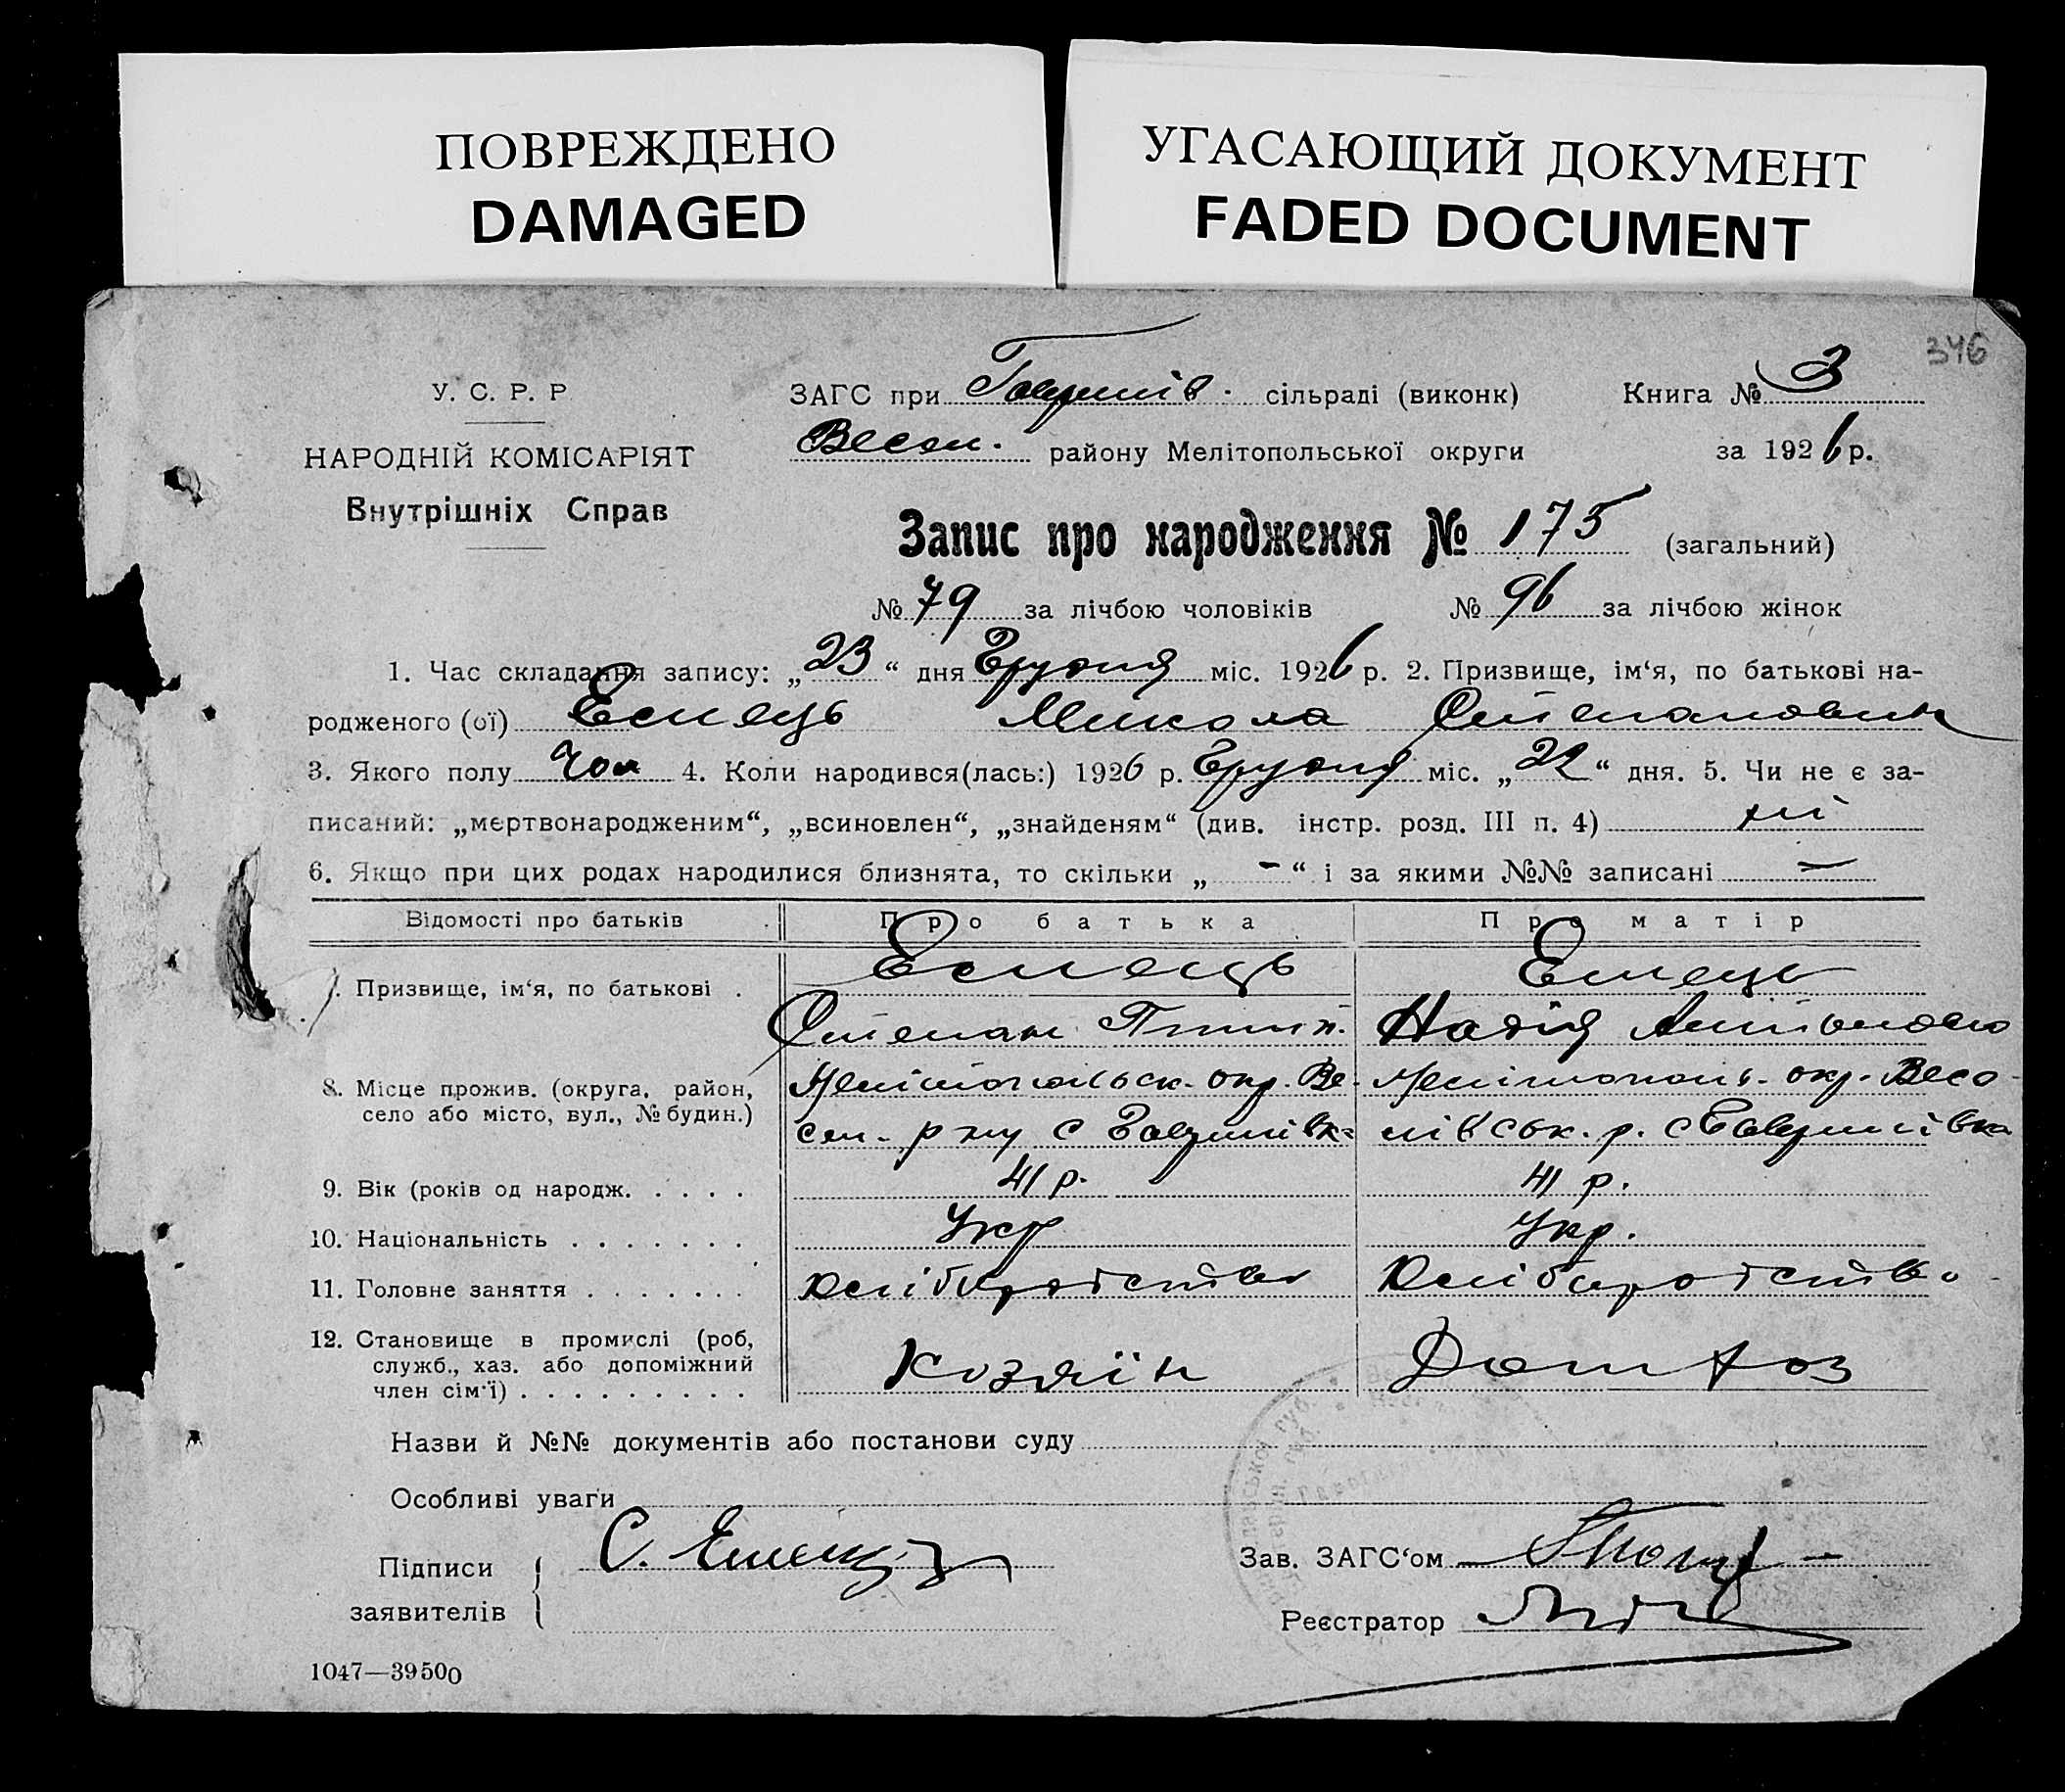 ПОВРЕЖДЕНО
DAMAGED
УГАСАЮЩИЙ ДОКУМЕНТ
FADED DOCUMENT
346
У. С. Р. Р
НАРОДНІЙ КОМІСАРІЯТ
Внутрішніх Справ
ЗАГС при сільраді (виконк)
Книга № 3
Весел. району Мелітопольської округи
за 1926 р.
Запис про народження № 175 (загальний)
№ 79 за лічбою чоловіків № 96 за лічбою жінок
1. Час складання запису: „23“ дня Грудня міс. 1926 р. 2. Призвище, ім‘я, по батькові на-
родженого (ої) Ємець Микола Степанович
3. Якого полу Чол 4. Коли народився(лась:) 1926 р. Грудня міс. „22“ дня. 5. Чи не є за-
писаний: „мертвонародженим“, „всиновлен“, „знайденям“ (див. інстр. розд. III п. 4) ні
6. Якщо при цих родах народилися близнята, то скільки „ - “ і за якими №№ записані —
Відомості про батьків Про батька Про матір
7. Призвище, ім‘я, по батькові . Ємець Ємець
Степан Надія
8. Місце прожив. (округа, район, село або місто, вул., № будин.) Мелітопольськ. окр. Ве- Мелітополь. окр. Весе-
сел. р-ну с лівськ. р. с
9. Вік (років од народж. . . . . 41 р. 41 р.
10. Національність . . . . . . . Укр Укр.
11. Головне заняття . . . . . . . Хліборобство Хліборобство
12. Становище в промислі (роб, служб., хаз. або допоміжний член сім‘ї) . . . . . . . . . Хозяїн Дом хоз
Назви й №№ документів або постанови суду
Особливі уваги
Підписи заявителів С. Емець
Зав. ЗАГС‘ом
Реєстратор
1047—39500